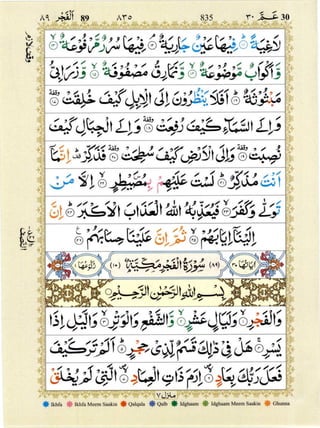 ٨٩ اَلْفَجْر 89 ٨٣٥ 835 ٣٠ عَمَّ 30
لَاغِيَةً ۝ فِيْهَا عَيْنٌ جَارِيَةٌ ۝ فِيْهَا سُرُرٌ مَّرْفُوْعَةٌ ۝
وَّاَكْوَابٌ مَّوْضُوْعَةٌ ۝ وَّنَمَارِقُ مَصْفُوْفَةٌ ۝ وَّزَرَابِيُّ
مَبْثُوْثَةٌ ۝ اَفَلَا يَنْظُرُوْنَ اِلَى الْاِبِلِ كَيْفَ خُلِقَتْ ۝
وَاِلَى السَّمَآءِ كَيْفَ رُفِعَتْ ۝ وَاِلَى الْجِبَالِ كَيْفَ
نُصِبَتْ ۝ وَاِلَى الْاَرْضِ كَيْفَ سُطِحَتْ ۝ فَذَكِّرْ اِنَّمَآ
اَنْتَ مُذَكِّرٌ ۝ لَسْتَ عَلَيْهِمْ بِمُصَۜيْطِرٍ ۝ اِلَّا مَنْ
تَوَلّٰى وَكَفَرَ ۝ فَيُعَذِّبُهُ اللّٰهُ الْعَذَابَ الْاَكْبَرَ ۝ اِنَّ
اِلَيْنَآ اِيَابَهُمْ ۝ ثُمَّ اِنَّ عَلَيْنَا حِسَابَهُمْ ۝
اٰيَاتُهَا ٣٠ (٨٩) سُوْرَةُ الْفَجْرِ مَكِّيَّةٌ (١٠) رُكُوْعُهَا ١
بِسْمِ اللّٰهِ الرَّحْمٰنِ الرَّحِيْمِ
وَالْفَجْرِ ۝ وَلَيَالٍ عَشْرٍ ۝ وَّالشَّفْعِ وَالْوَتْرِ ۝ وَالَّيْلِ اِذَا
يَسْرِ ۝ هَلْ فِيْ ذٰلِكَ قَسَمٌ لِّذِيْ حِجْرٍ ۝ اَلَمْ تَرَ كَيْفَ
فَعَلَ رَبُّكَ بِعَادٍ ۝ اِرَمَ ذَاتِ الْعِمَادِ ۝ الَّتِيْ لَمْ يُخْلَقْ
منزل ٧
Ikhfa Ikhfa Meem Saakin Qalqala Qalb Idghaam Idghaam Meem Saakin Ghunna